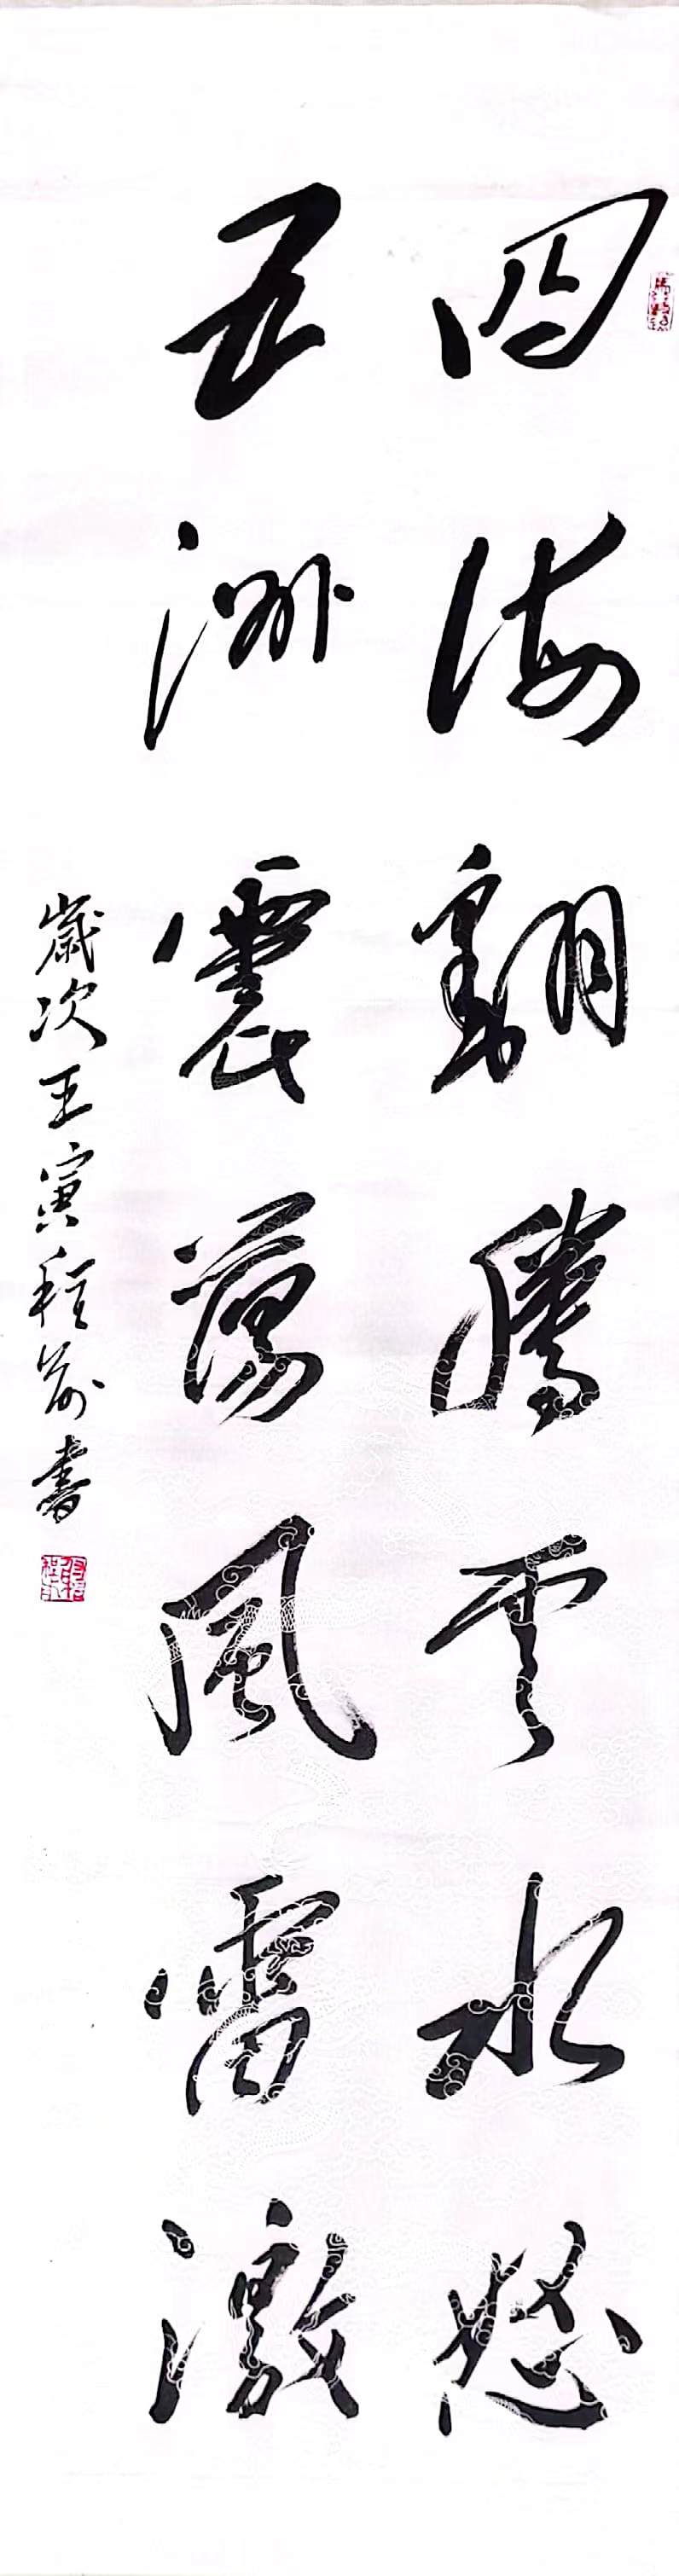 四海翻腾云水怒
五洲震荡風雷激
歲次壬寅程前書